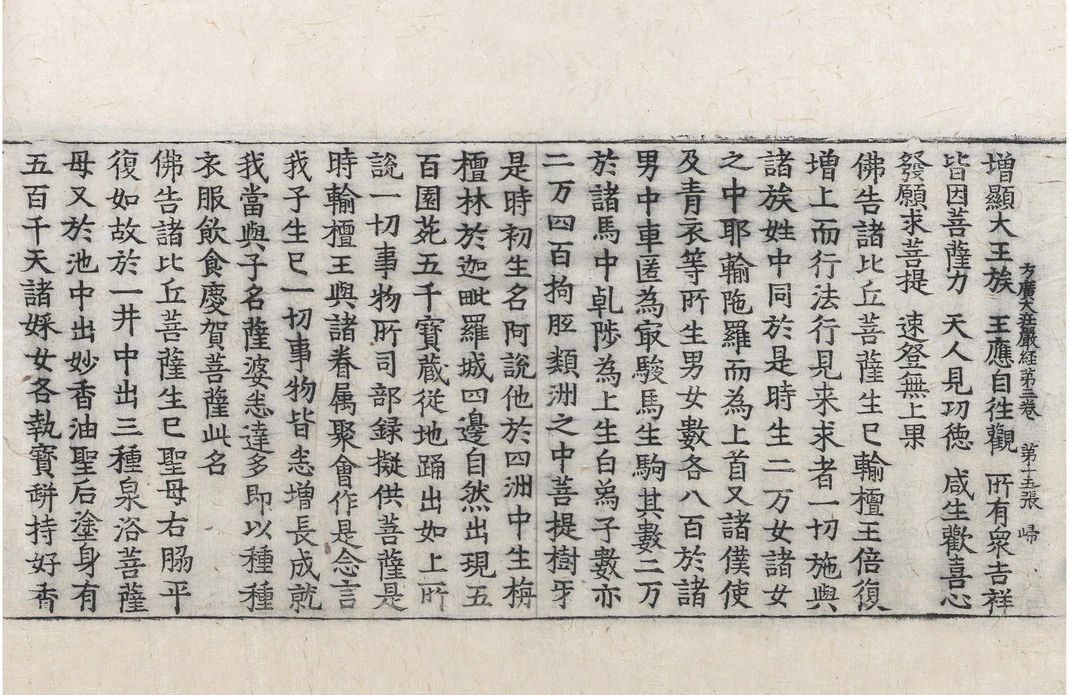 方廣大莊嚴経第三卷 第十五張 歸
增顯大王族 王應自往觀 所有衆吉祥
皆因菩薩力 天人見㓛徳 咸生歡喜心
發願求菩提 速登無上果
佛告諸比丘菩薩生已輸檀王倍復
增上而行法行見来求者一切施與
諸族姓中同於是時生二万女諸女
之中耶輸陁羅而為上首又諸僕使
及青衣等所生男女數各八百於諸
男中車匿為㝡駿馬生駒其數二万
於諸馬中乹陟為上生白象子數亦
二万四百拘胝類洲之中菩提樹牙
是時初生名阿說他於四洲中生栴
檀林於迦毗羅城四邊自然出現五
百園菀五千寶蔵従地踊出如上所
說一切事物所司部録擬供菩薩是
時輸檀王與諸眷属聚會作是念言
我子生已一切事物皆悉增長成就
我當與子名薩婆悉達多即以種種
衣服飲食慶賀菩薩此名
佛告諸比丘菩薩生已聖母右脇平
復如故於一井中出三種泉浴菩薩
母又於池中出妙香油聖后塗身有
五百千天諸婇女各執寶缾持好香